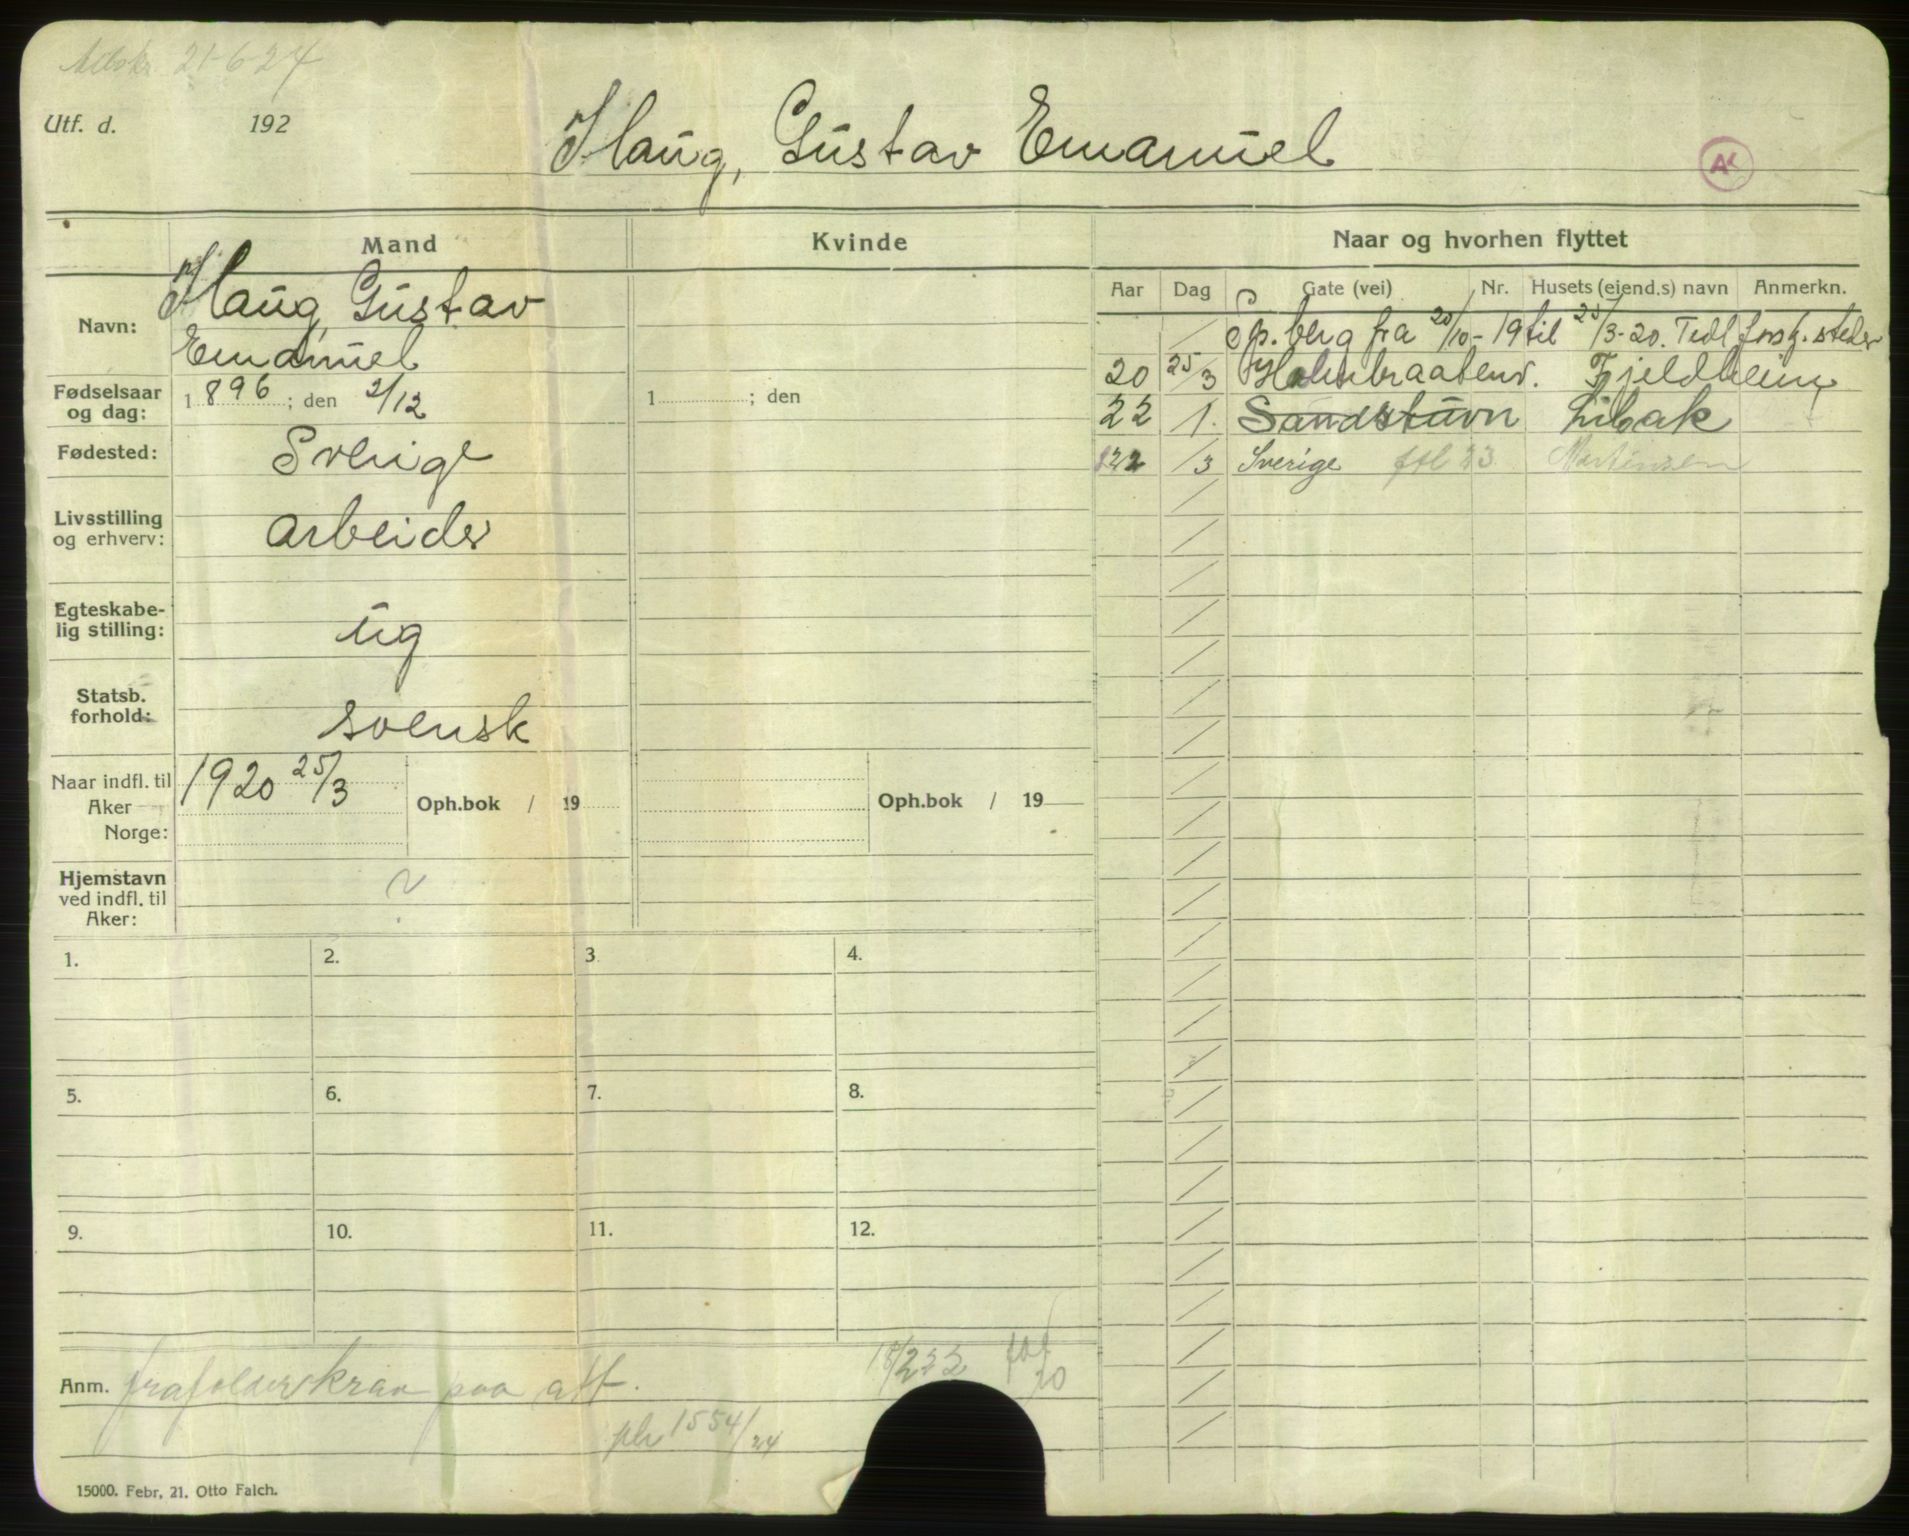 21-6 24
Utf. d. 192
Haug, Gustav Emanuel
AK
Mand Kvinde Naar og hvorhen flyttet
Aar Dag Gate (vei) Nr. Husets (eiend.s) navn Anmerkn.
Navn: Haug, Gustav
Emanuel
Fødselsaar og dag: 1896; den 2/12 1 ; den
Fødested: Sverige
Livsstilling og erhverv: arbeider
Egteskabe-lig stilling: ug
Statsb. forhold: svensk
Naar indfl. til Aker Norge: 1920 25/3 Oph.bok / 19 Oph.bok / 19
Hjemstavn ved indfl. til Aker: ?
/ Sp.berg fra 20/10-19 til 25/3-20. Tidl forsk. steder
20 25/3 Fjeldheim
22 1. Sandstuvn Libak
22 /3 Sverige Martinsen
1. 2. 3. 4.
5. 6. 7. 8.
9. 10. 11. 12.
Anm. paa att.
1554/24
15000. Febr, 21. Otto Falch.